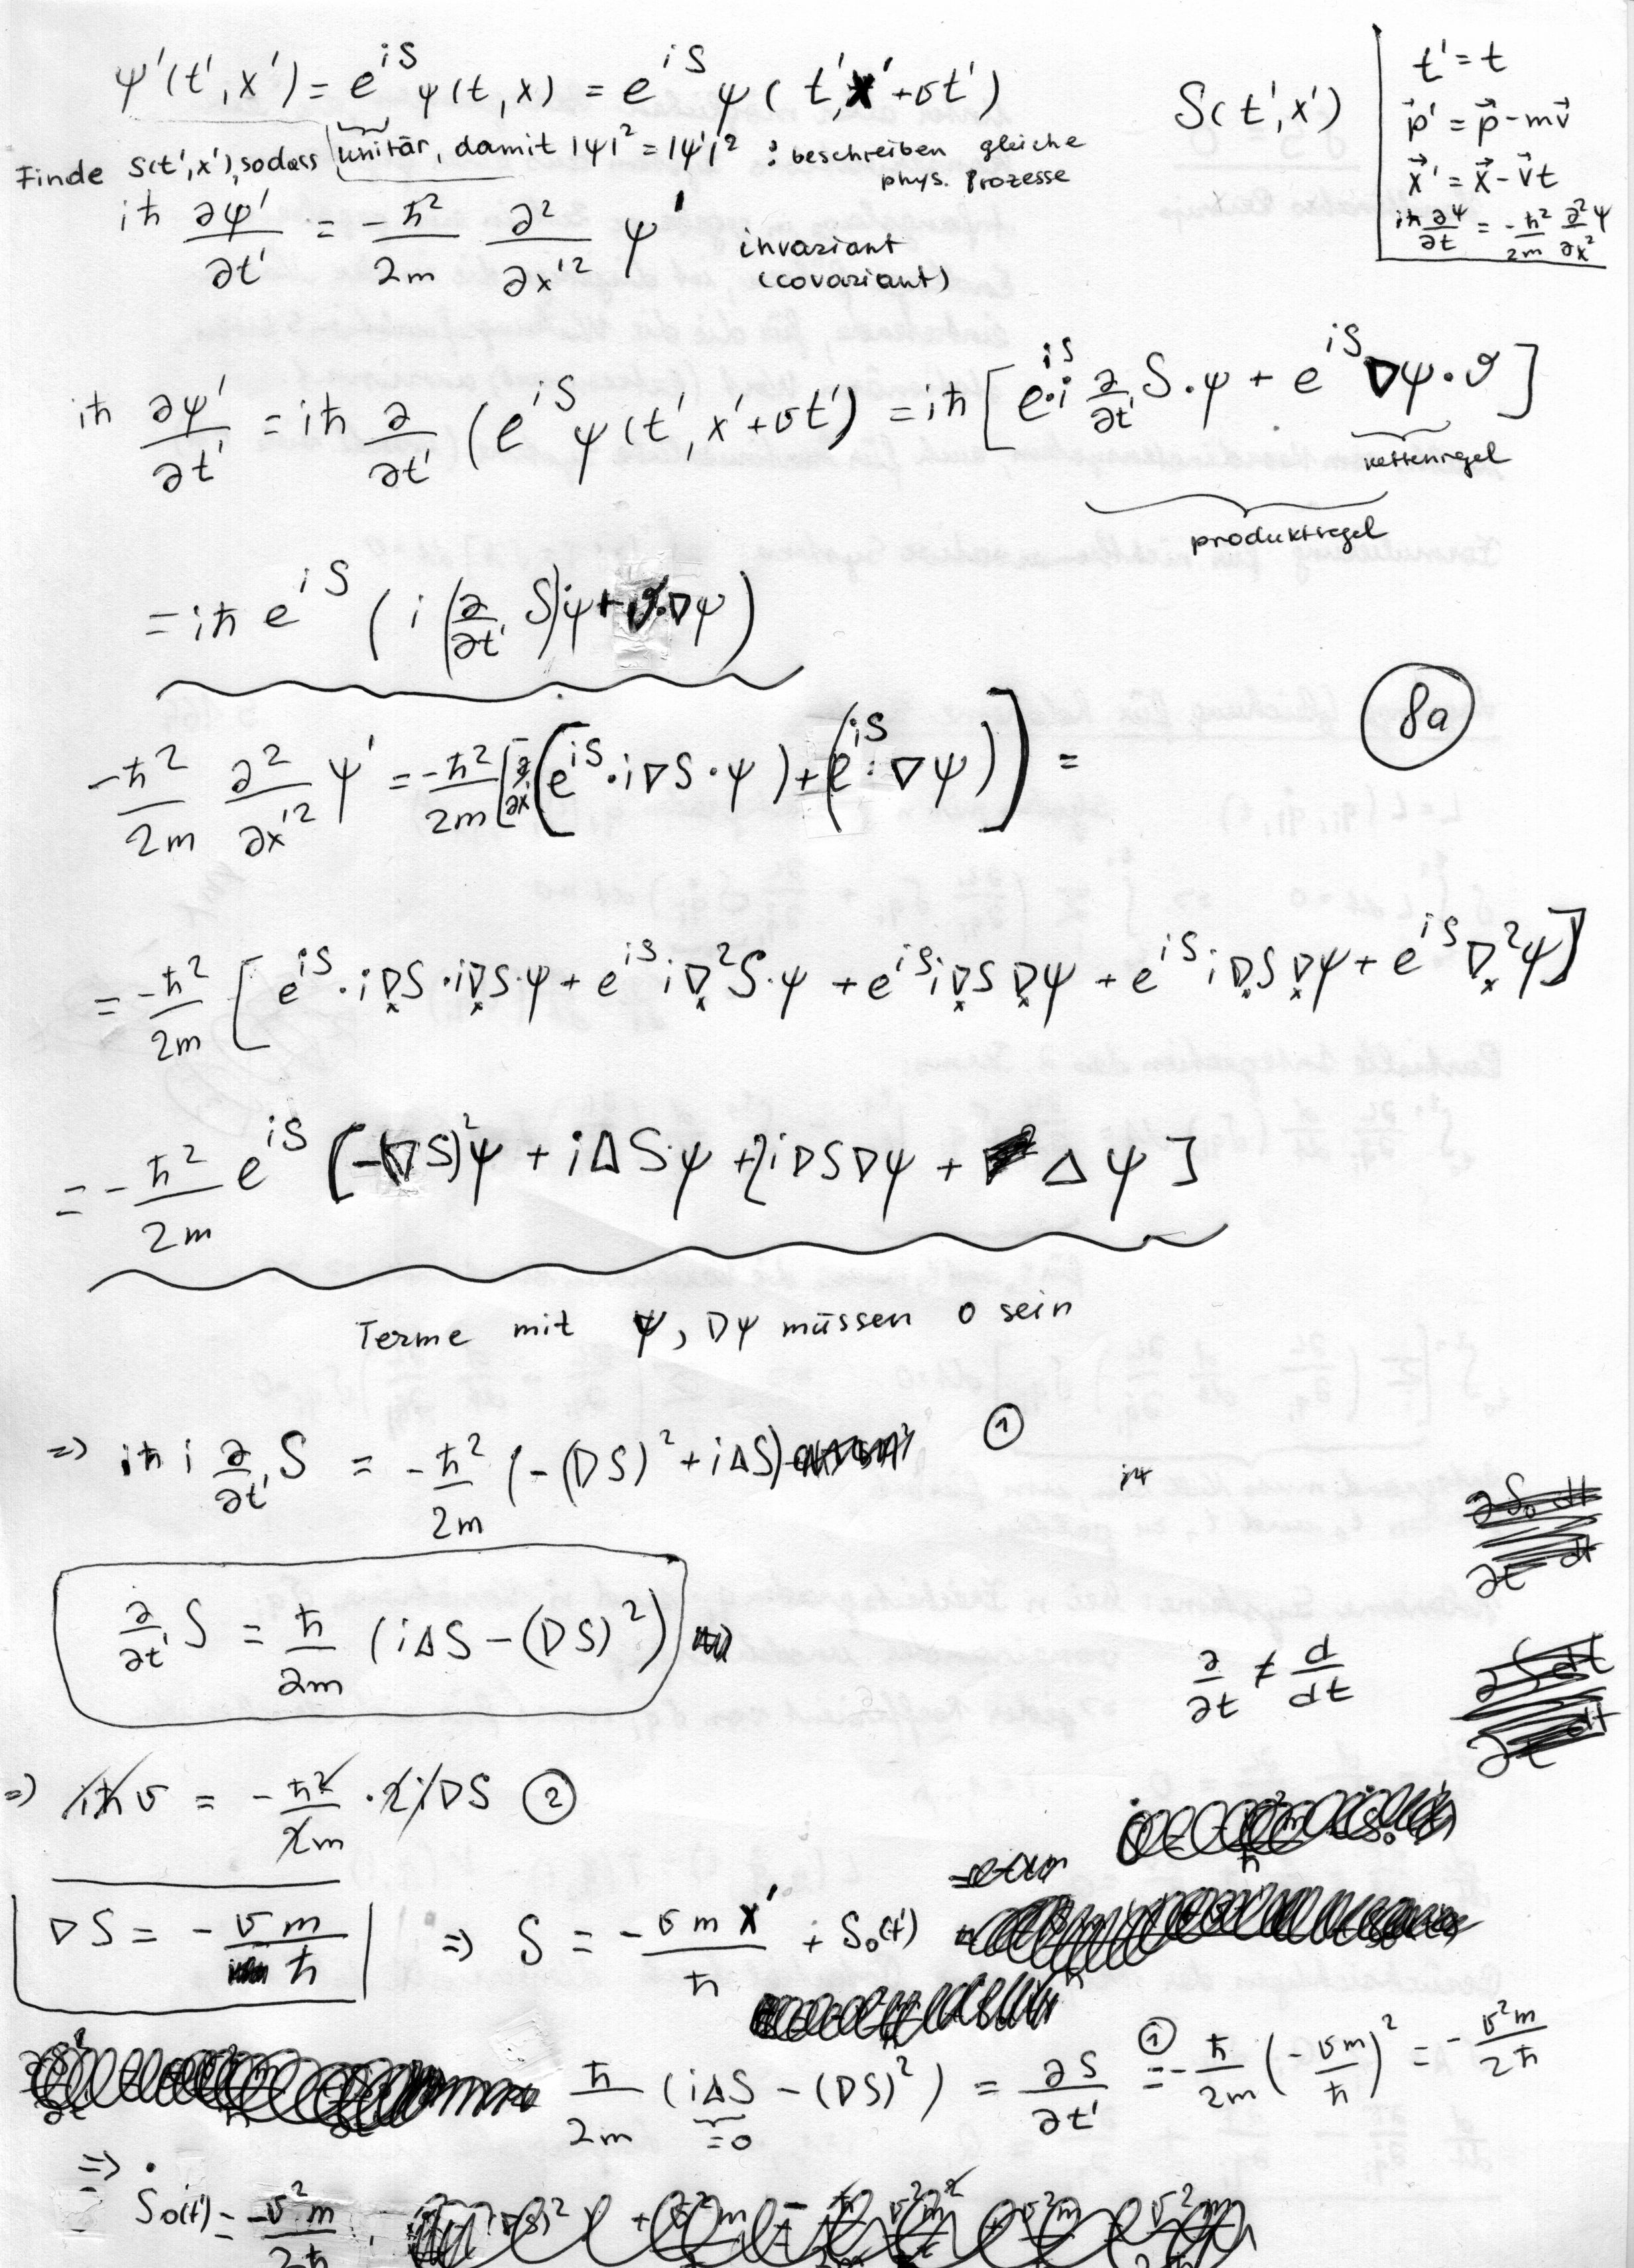 ψ'(t', x') = e^{iS} ψ(t, x) = e^{iS} ψ(t', x' + vt')
S(t', x')
t' = t
p⃗' = p⃗ - mv⃗
x⃗' = x⃗ - v⃗t
iħ ∂ψ/∂t = -ħ²/2m ∂²/∂x² ψ
unitär, damit |ψ|² = |ψ'|² : beschreiben gleiche
phys. Prozesse
Finde S(t', x'), sodass
iħ ∂ψ'/∂t' = -ħ²/2m ∂²/∂x'² ψ' invariant
(covariant)
iħ ∂ψ'/∂t' = iħ ∂/∂t' (e^{iS} ψ(t', x' + vt') = iħ [e^{iS}·i ∂/∂t' S·ψ + e^{iS} ∇ψ·v]
kettenregel
produktregel
= iħ e^{iS} (i (∂/∂t' S)ψ + v·∇ψ)
8a
-ħ²/2m ∂²/∂x'² ψ' = -ħ²/2m [∂/∂x' (e^{iS}·i∇S·ψ) + (e^{iS}·∇ψ))] =
= -ħ²/2m [e^{iS}·i∇ₓS·i∇ₓS·ψ + e^{iS} i∇ₓ²S·ψ + e^{iS} i∇ₓS ∇ₓψ + e^{iS} i∇ₓS ∇ₓψ + e^{iS} ∇ₓ²ψ]
= -ħ²/2m e^{iS} [-(∇S)²ψ + iΔS·ψ + 2i∇S∇ψ + Δψ]
Terme mit ψ, ∇ψ müssen 0 sein
=> iħ i ∂/∂t' S = -ħ²/2m (-(∇S)² + iΔS) ①
∂/∂t' S = ħ/2m (iΔS - (∇S)²)
∂/∂t ≠ d/dt
=> iħv = -ħ²/2m · 2i∇S ②
∇S = -vm/ħ => S = -vmx'/ħ + S₀(t')
ħ/2m (iΔS - (∇S)²) = ∂S/∂t' ①= -ħ/2m (-vm/ħ)² = -v²m/2ħ
=0
=> Ṡ₀(t') = -v²m/2ħ